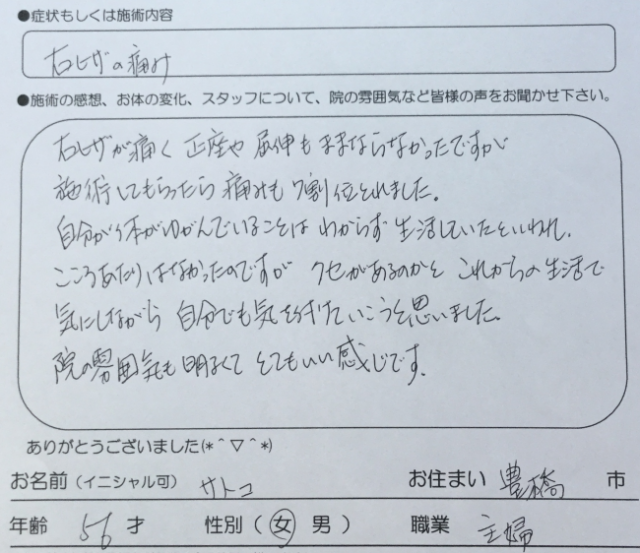 ●症状もしくは施術内容
右ヒザの痛み
●施術の感想、お体の変化、スタッフについて、院の雰囲気など皆様の声をお聞かせ下さい。
右ヒザが痛く 正座や 屈伸も ままならなかったですが
施術してもらったら 痛みも 7割位とれました。
自分が 体がゆがんでいることは わからず 生活していたといわれ、
こころあたりはなかったのですが クセがあるのかと これからの 生活で
気にしながら 自分でも 気を付けていこうと思いました。
院の雰囲気も 明るくて とてもいい 感じです。
ありがとうございました(*＾▽＾*)
お名前（イニシャル可） サトコ お住まい 豊橋 市
年齢 56 才 性別（ 女 男 ） 職業 主婦